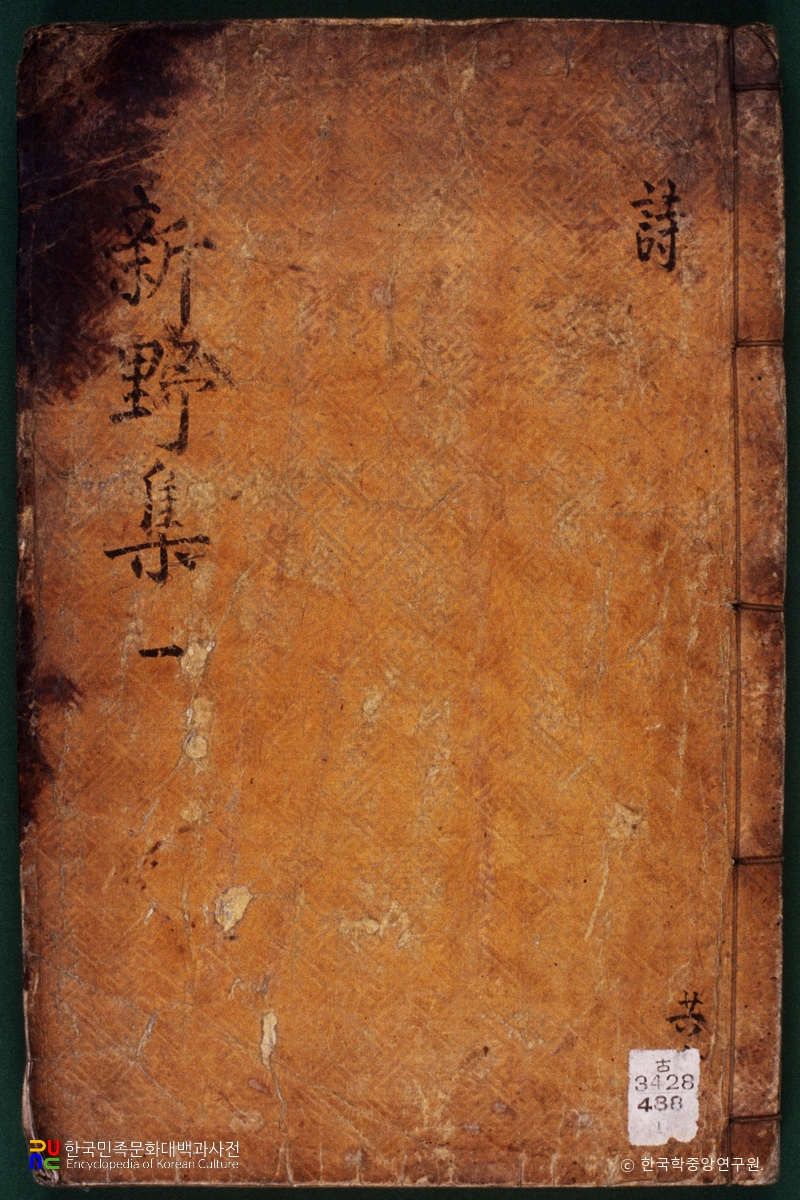 詩
新野集 一
共
古
3428
488
1
한국민족문화대백과사전
Encyclopedia of Korean Culture
© 한국학중앙연구원